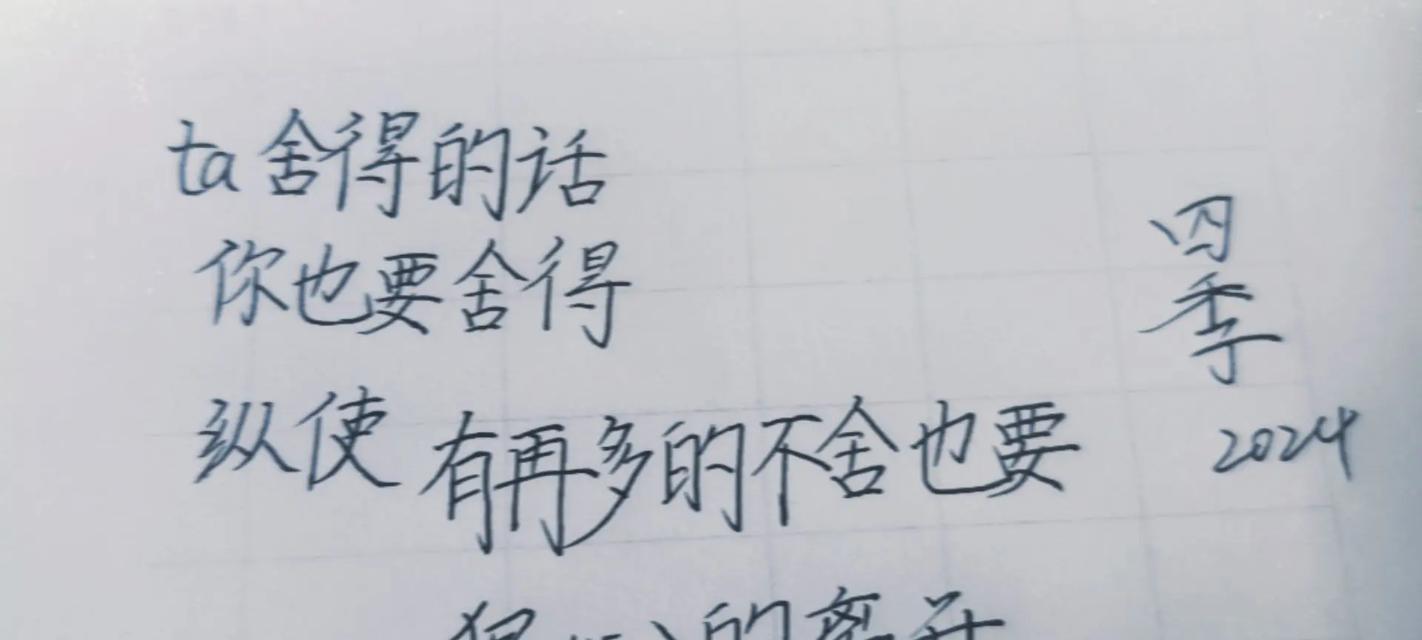 ta舍得的话
你也要舍得
纵使有再多的不舍也要
狠心的离开
四季
2024